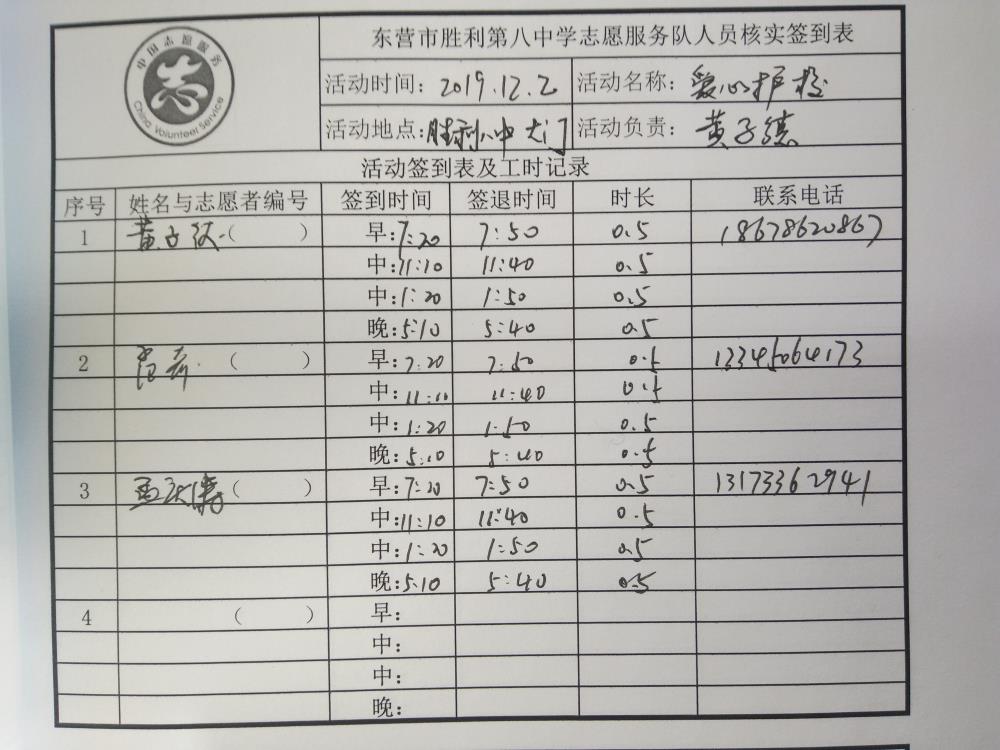 中国志愿服务
志
China Volunteer Service
东营市胜利第八中学志愿服务队人员核实签到表
活动时间：2019.12.2 活动名称：爱心护校
活动地点：胜利八中大门 活动负责：黄子德
活动签到表及工时记录
序号 姓名与志愿者编号 签到时间 签退时间 时长 联系电话
1 （ ） 早：7:20 7:50 0.5 18678620867
中：11:10 11:40 0.5
中：1:20 1:50 0.5
晚：5:10 5:40 0.5
2 （ ） 早：7:20 7:50 0.5 13345064173
中：11:10 11:40 0.5
中：1:20 1:50 0.5
晚：5:10 5:40 0.5
3 （ ） 早：7:20 7:50 0.5 13173362941
中：11:10 11:40 0.5
中：1:20 1:50 0.5
晚：5:10 5:40 0.5
4 （ ） 早：
中：
中：
晚：